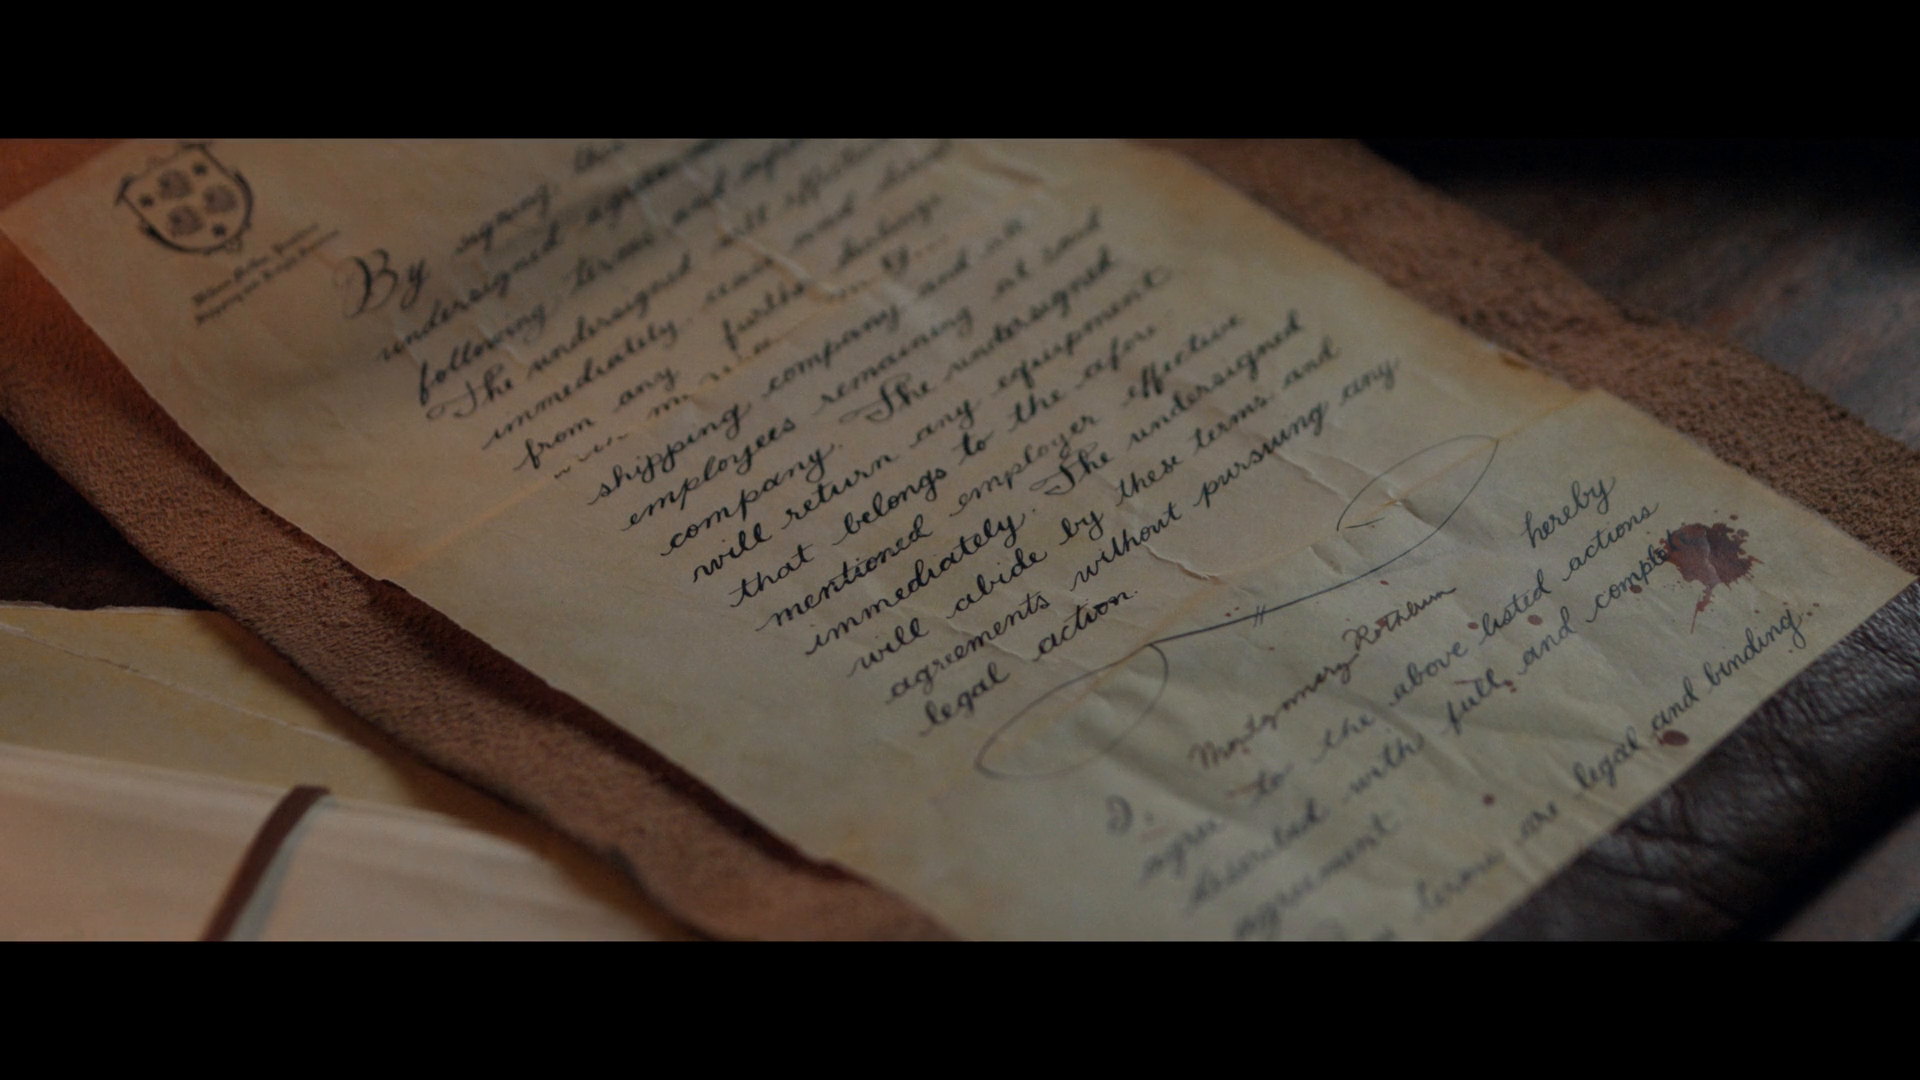 By signing this
undersigned agrees
following terms and
The undersigned will
immediately
from any further dealings
shipping company and all
employees remaining at said
company. The undersigned
will return any equipment
that belongs to the afore
mentioned employer effective
immediately. The undersigned
will abide by these terms and
agreements without pursuing any
legal action.
I, Montgomery Rothburn hereby
agree to the above listed actions
described with full and complete
agreement
terms are legal and binding.